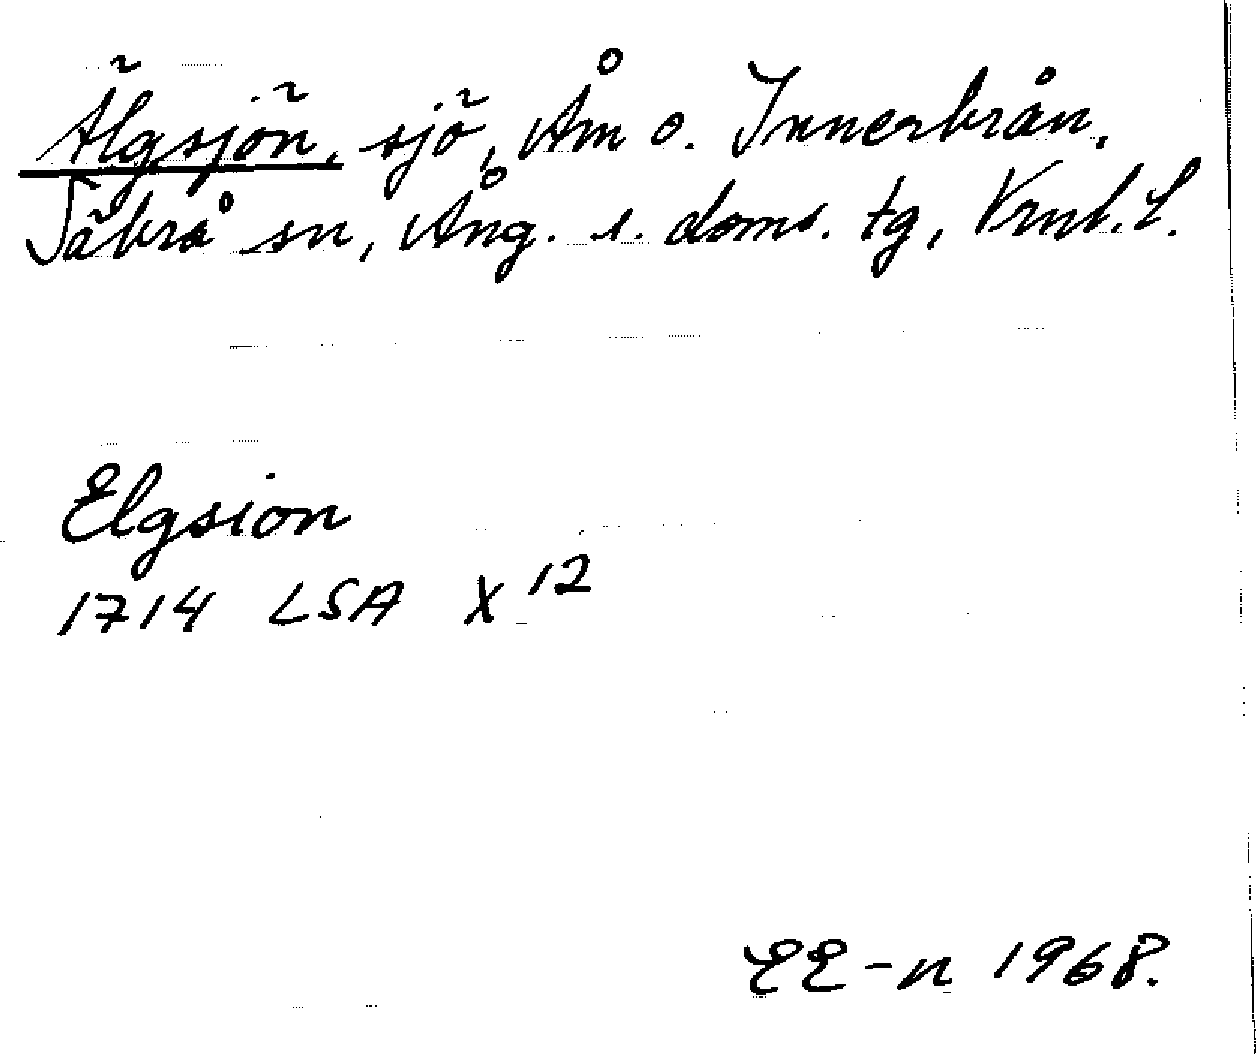 Älgsjön, sjö, Åm o. Innerbrån,
Säbrå sn, Ång. s. doms. tg, Vrnl. L.
Elgsion
1714 LSA X 12
EE-n 1968.